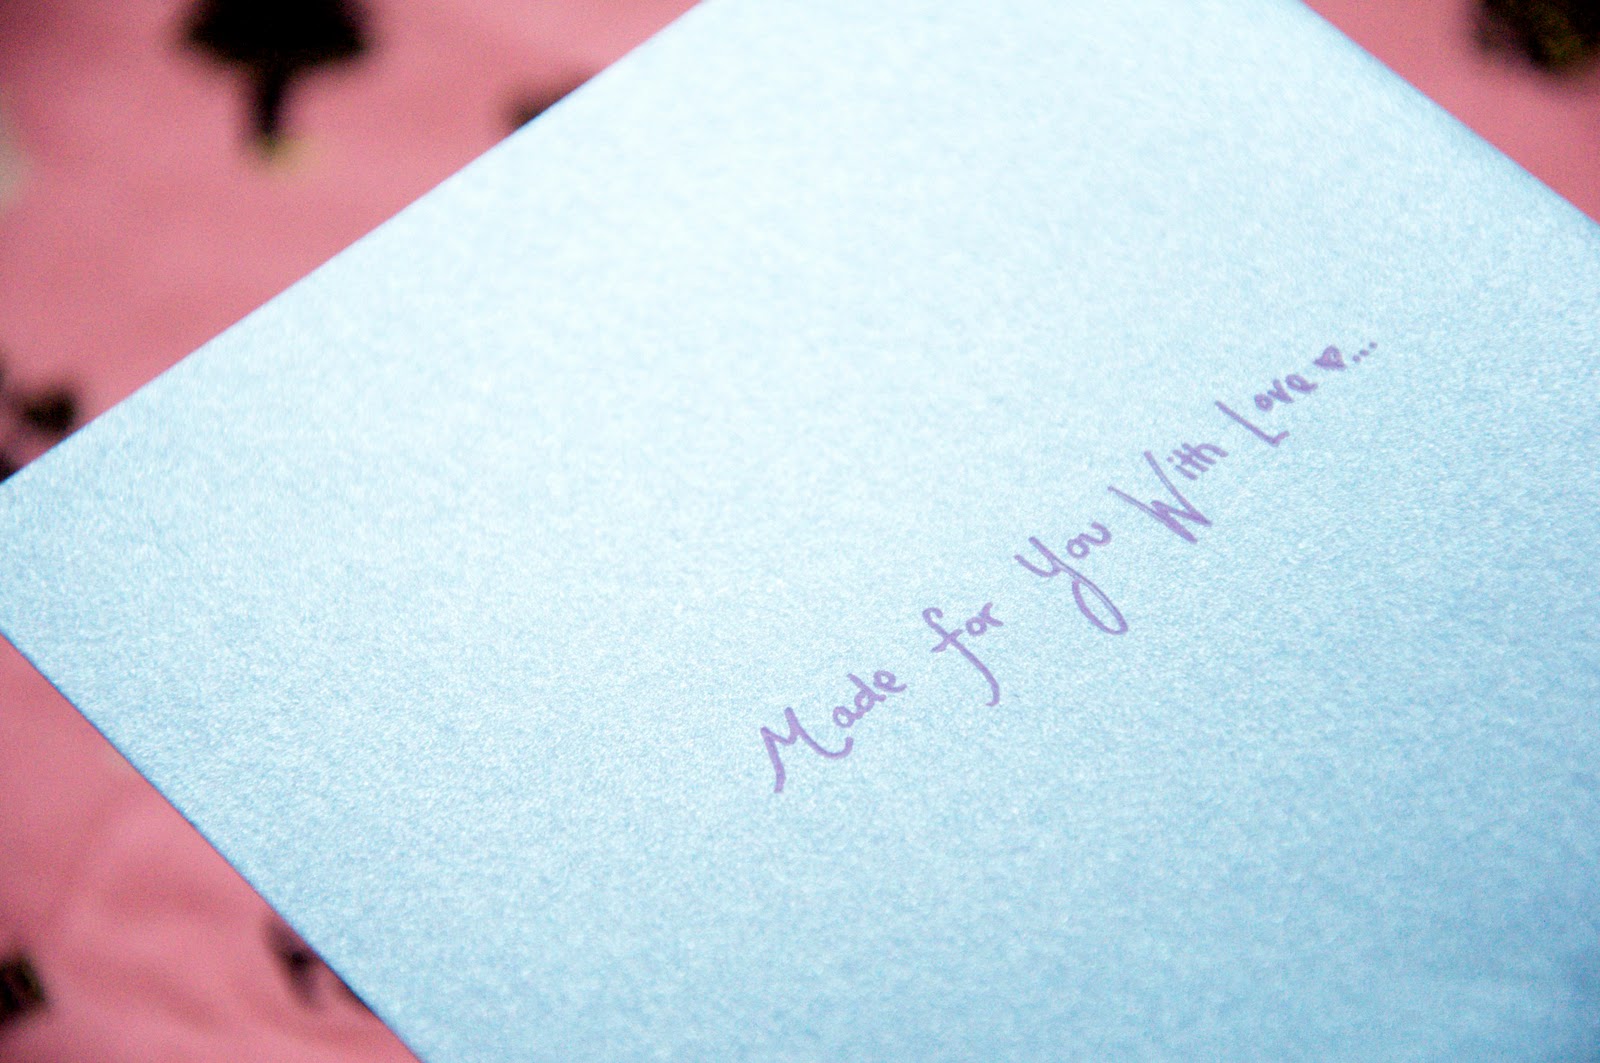 Made for You With Love ♥...